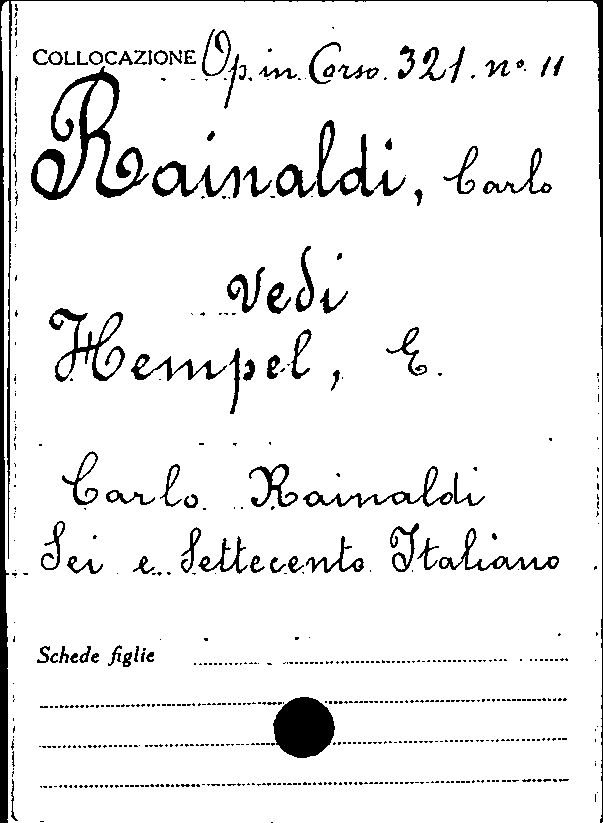 COLLOCAZIONE Op. in Corso. 321. nº 11
Rainaldi, Carlo
vedi
Hempel, E.
Carlo Rainaldi
Sei e Settecento Italiano
Schede figlie